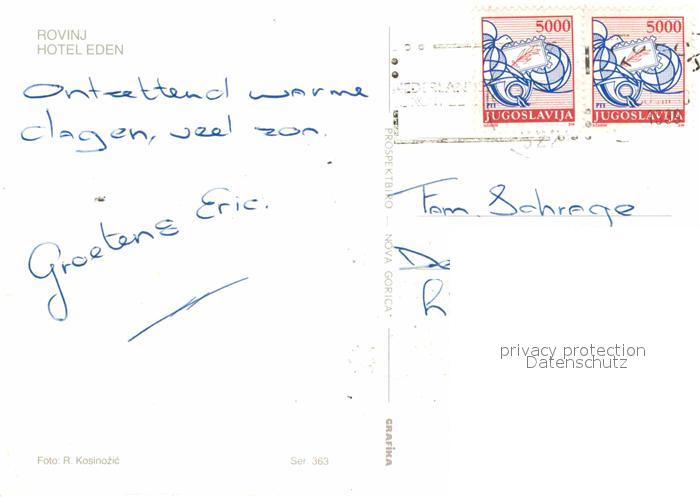 ROVINJ
HOTEL EDEN
Ontzettend warme
dagen, veel zon.
Groetens Eric.
Foto: R. Kosinožić
Ser. 363
PROSPEKTBIRO — NOVA GORICA
GRAFIKA
5000
PTT
JUGOSLAVIJA
5000
PTT
JUGOSLAVIJA
Fam. Schrage
privacy protection
Datenschutz